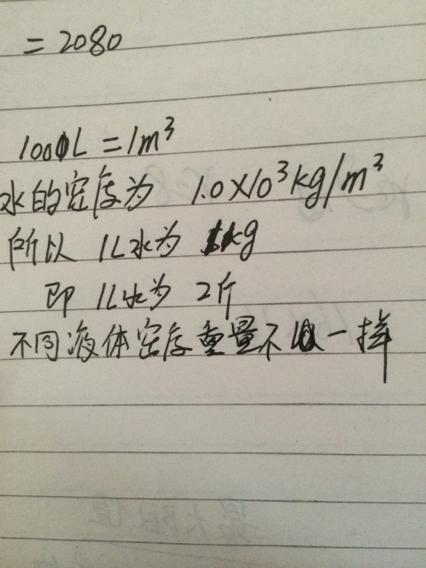 = 2080
1000L = 1m³
水的密度为 1.0×10³kg/m³
所以 1L水为 1kg
即 1L水为 2斤
不同液体密度重量不一样